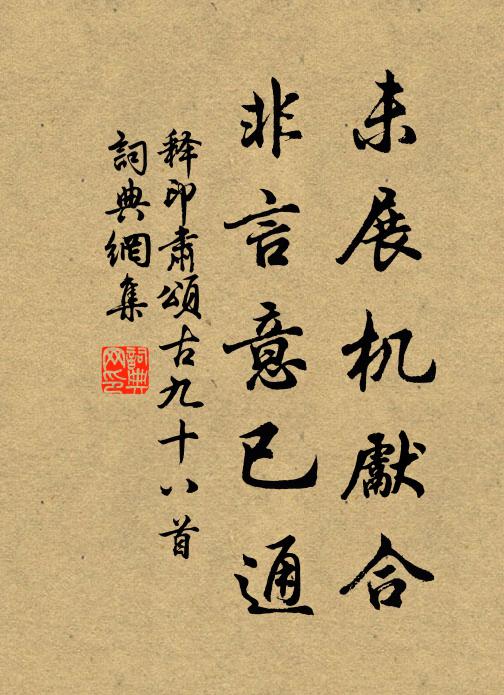 未展机獻合
非言意已通
释印肅頌古九十八首
詞典網集
詞典網印